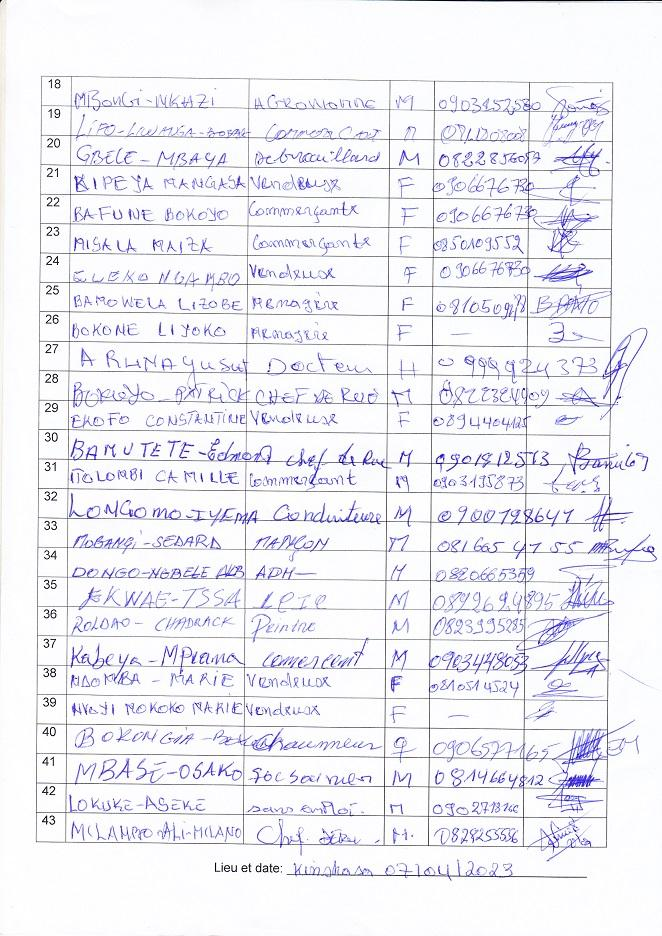 18 MBONGI-NKAZI AGRONOME M 0903152580
19 M
20 GBELE-MBAYA Debrouillard M 0822856057
21 KIPEYA MANGASA Vendeuse F 0906676730
22 BAFUNE BOKOYO Commerçante F 0906676730
23 MISALA MAIZA Commerçante F 0850109552
24 ELEKO NGAMBO Vendeuse F 0906676730
25 BAMOWELA LIZOBE Menagère F
26 BOKONE LIYOKO Menagère F —
27 ARUNA Yusuf Docteur H 0999924373
28 BOKOYO-PATRICK CHEF DE RUE M
29 EKOFO CONSTANTINE Vendeuse F 0894404125
30 BAMUTETE-Edmond chef de Rue M 0901812513
31 ITOLOMBI CAMILLE Commerçant M 0903195873
32 LONGOMO-IYEMA Conduiteure M 0900798641
33 MOBANGI-SEDARD MAÇON M 081665 47 55
34 DONGO-NGBELE ADM— M 0820665359
35 EKWAE-TSSA M 0892694895
36 ROLDAO-CHADRACK Peintre M 0823995285
37 Kabeya-Mpiana comercent M 0903448053
38 NDOMBA-MARIE Vendeuse F 0810514524
39 MOKOKO MARIE Vendeuse F —
40 BOKONGIA- Chaumneur 0906577165
41 MBASE-OSAKO M 0814664812
42 LOKUKE-ASEKE sans emploi. M
43 MILAMBO-ALI-MILANO Chef. M. 0828253556
Lieu et date: Kinshasa 07/04/2023